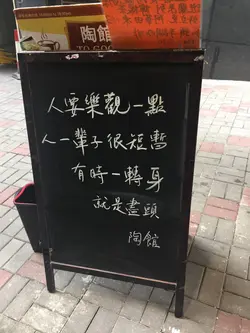 陶館
TO GO
人要樂觀一點
人一輩子很短暫
有時一轉身
就是盡頭
陶館